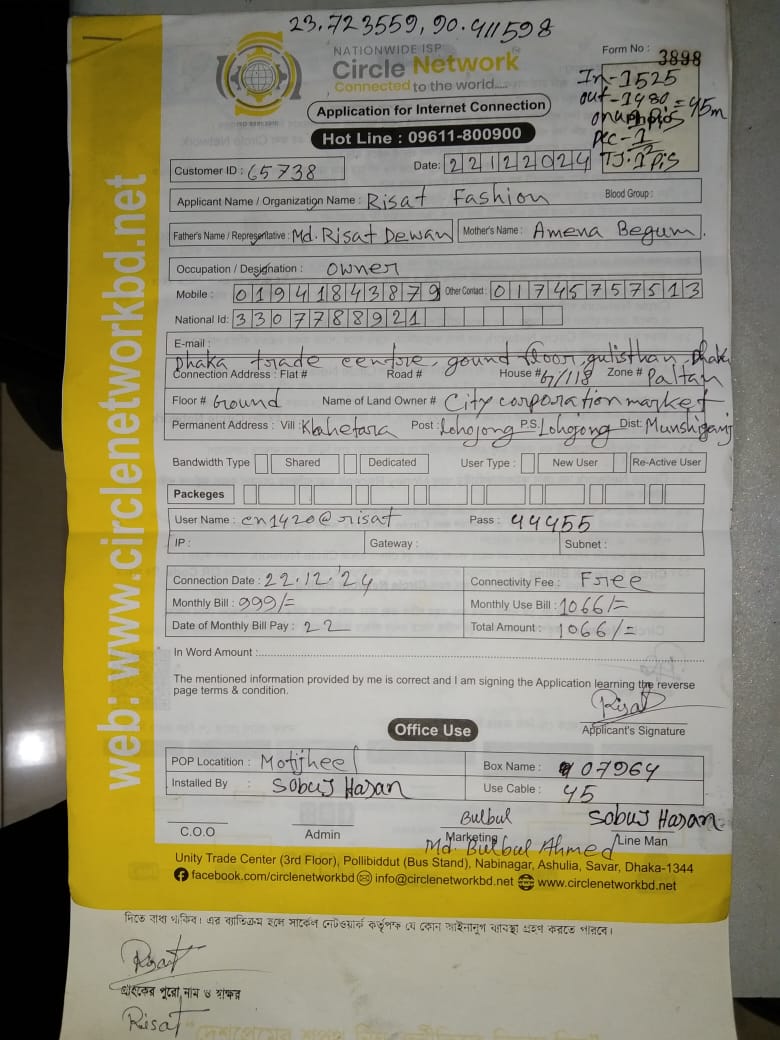 23.723559, 90.411598
NATIONWIDE ISP
Circle Network
Connected to the world.....
Form No : 3898
In-1525
out-1480 = 45m
onu-1 Pis
TJ-1 Pis
Application for Internet Connection
Hot Line : 09611-800900
Customer ID : 65738
Date: 22122024
Applicant Name / Organization Name : Risat Fashion Blood Group :
Father's Name / Representative : Md. Risat Dewan Mother's Name : Amena Begum.
Occupation / Designation : owner
Mobile : 01941843879 Other Contact : 01745757513
National Id: 3307788921
E-mail :
Dhaka trade centre, gound floor, gulisthan, Dhaka
Connection Address : Flat # Road # House # 67/118 Zone # Paltan
Floor # Ground Name of Land Owner # City corporation market
Permanent Address : Vill : Post : Lohojong P.S: Lohojong Dist: Munshiganj
Bandwidth Type Shared Dedicated User Type : New User Re-Active User
Packeges
User Name : cn1420@risat Pass : 44455
IP : Gateway : Subnet :
Connection Date : 22.12.'24 Connectivity Fee : Free
Monthly Bill : 999/= Monthly Use Bill : 1066/=
Date of Monthly Bill Pay : 22 Total Amount : 1066/=
In Word Amount :
The mentioned information provided by me is correct and I am signing the Application learning the reverse
page terms & condition.
Risat
Applicant's Signature
Office Use
POP Locatition : Motijheel Box Name : 07964
Installed By : Sobuj Hasan Use Cable : 45
Bulbul Sobuj Hasan
C.O.O Admin Marketing Line Man
Md. Bulbul Ahmed
Unity Trade Center (3rd Floor), Pollibiddut (Bus Stand), Nabinagar, Ashulia, Savar, Dhaka-1344
facebook.com/circlenetworkbd info@circlenetworkbd.net www.circlenetworkbd.net
web: www.circlenetworkbd.net
দিতে বাধ্য থাকিব। এর ব্যতিক্রম হলে সার্কেল নেটওয়ার্ক কর্তৃপক্ষ যে কোন আইনানুগ ব্যবস্থা গ্রহণ করতে পারবে।
Risat
গ্রাহকের পুরো নাম ও স্বাক্ষর
Risat